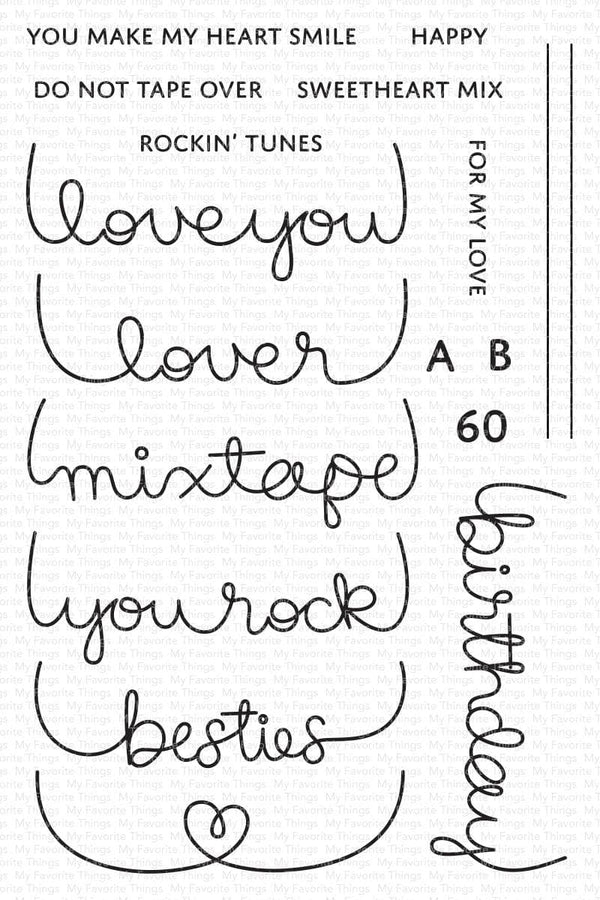 YOU MAKE MY HEART SMILE
HAPPY
DO NOT TAPE OVER
SWEETHEART MIX
ROCKIN' TUNES
FOR MY LOVE
love you
lover
A B
mixtape
60
you rock
birthday
besties
My Favorite Things